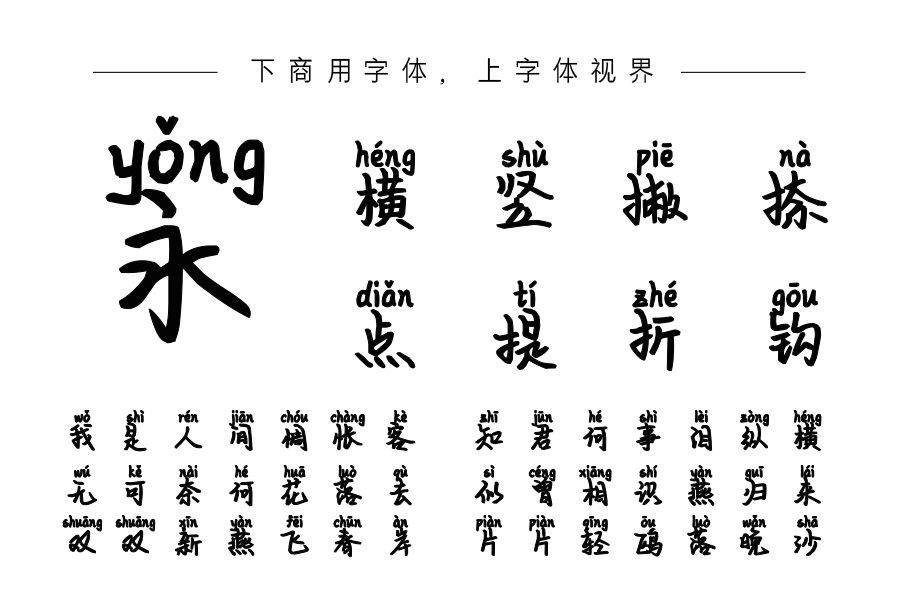 下商用字体，上字体视界
yǒng
永
héng shù piē nà
横 竖 撇 捺
diǎn tí zhé gōu
点 提 折 钩
wǒ shì rén jiān chóu chàng kè zhī jūn hé shì lèi zòng héng
我是人间惆怅客 知君何事泪纵横
wú kě nài hé huā luò qù sì céng xiāng shí yàn guī lái
无可奈何花落去 似曾相识燕归来
shuāng shuāng xīn yàn fēi chūn àn piàn piàn qīng ōu luò wǎn shā
双双新燕飞春岸 片片轻鸥落晚沙